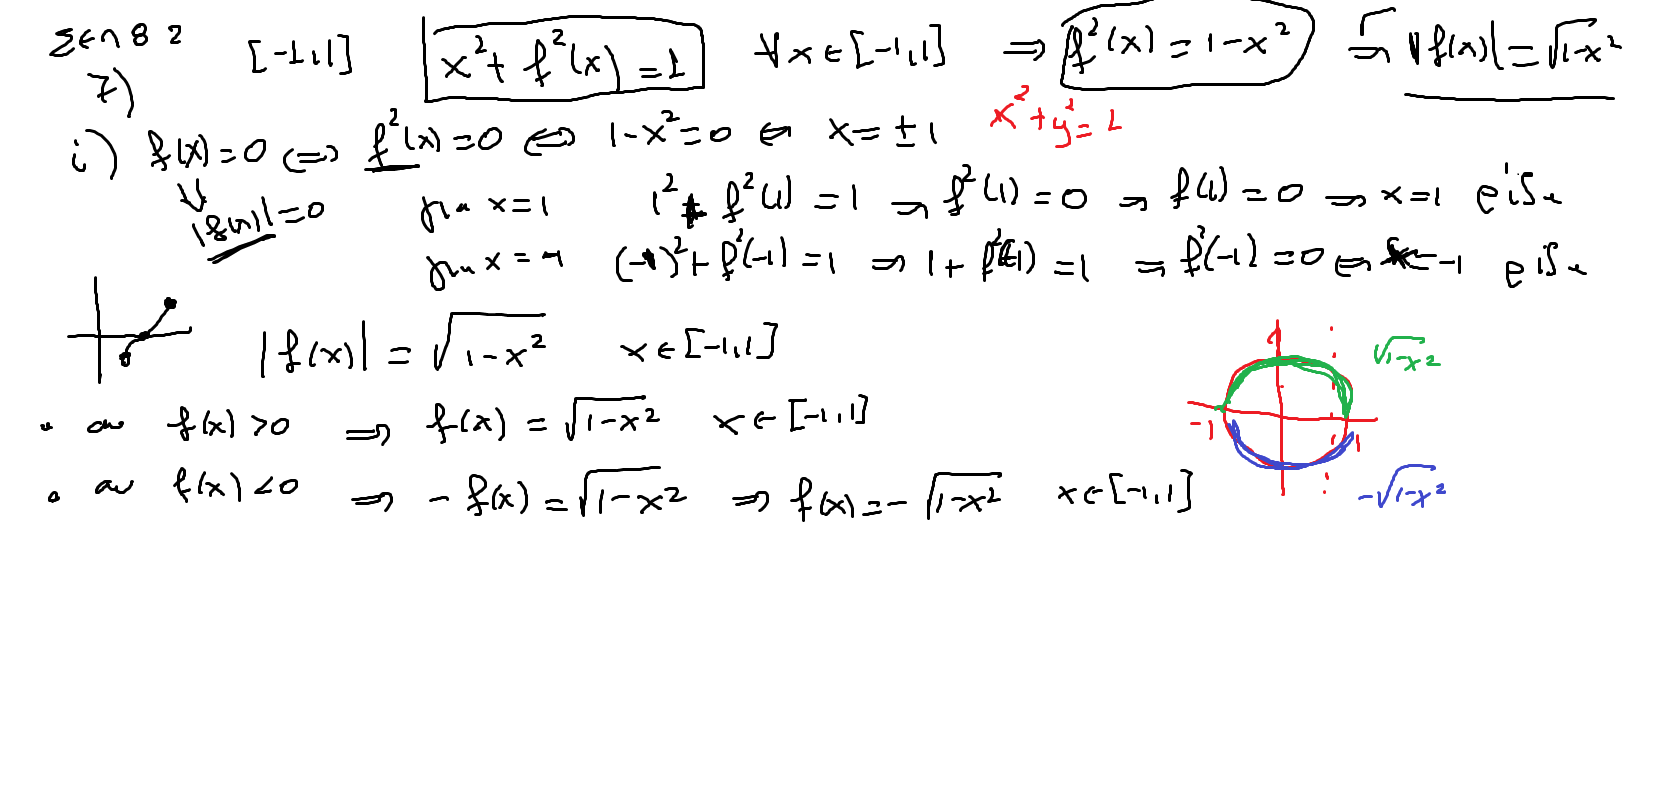 Σελ 82 [-1,1] x² + f²(x) = 1 ∀ x ∈ [-1,1] ⇒ f²(x) = 1-x² ⇒ |f(x)| = √1-x²
7)
i) f(x) = 0 ⇔ f²(x) = 0 ⇔ 1-x² = 0 ⇔ x = ±1 x² + y² = 1
⇓
|f(x)| = 0 για x = 1 1² + f²(1) = 1 ⇒ f²(1) = 0 ⇒ f(1) = 0 ⇒ x = 1 ρίζα
για x = -1 (-1)² + f²(-1) = 1 ⇒ 1 + f²(-1) = 1 ⇒ f²(-1) = 0 ⇔ -1 ρίζα
|f(x)| = √1-x² x ∈ [-1,1]
√1-x²
• αν f(x) > 0 ⇒ f(x) = √1-x² x ∈ [-1,1]
-1 1
• αν f(x) < 0 ⇒ -f(x) = √1-x² ⇒ f(x) = -√1-x² x ∈ [-1,1]
-√1-x²